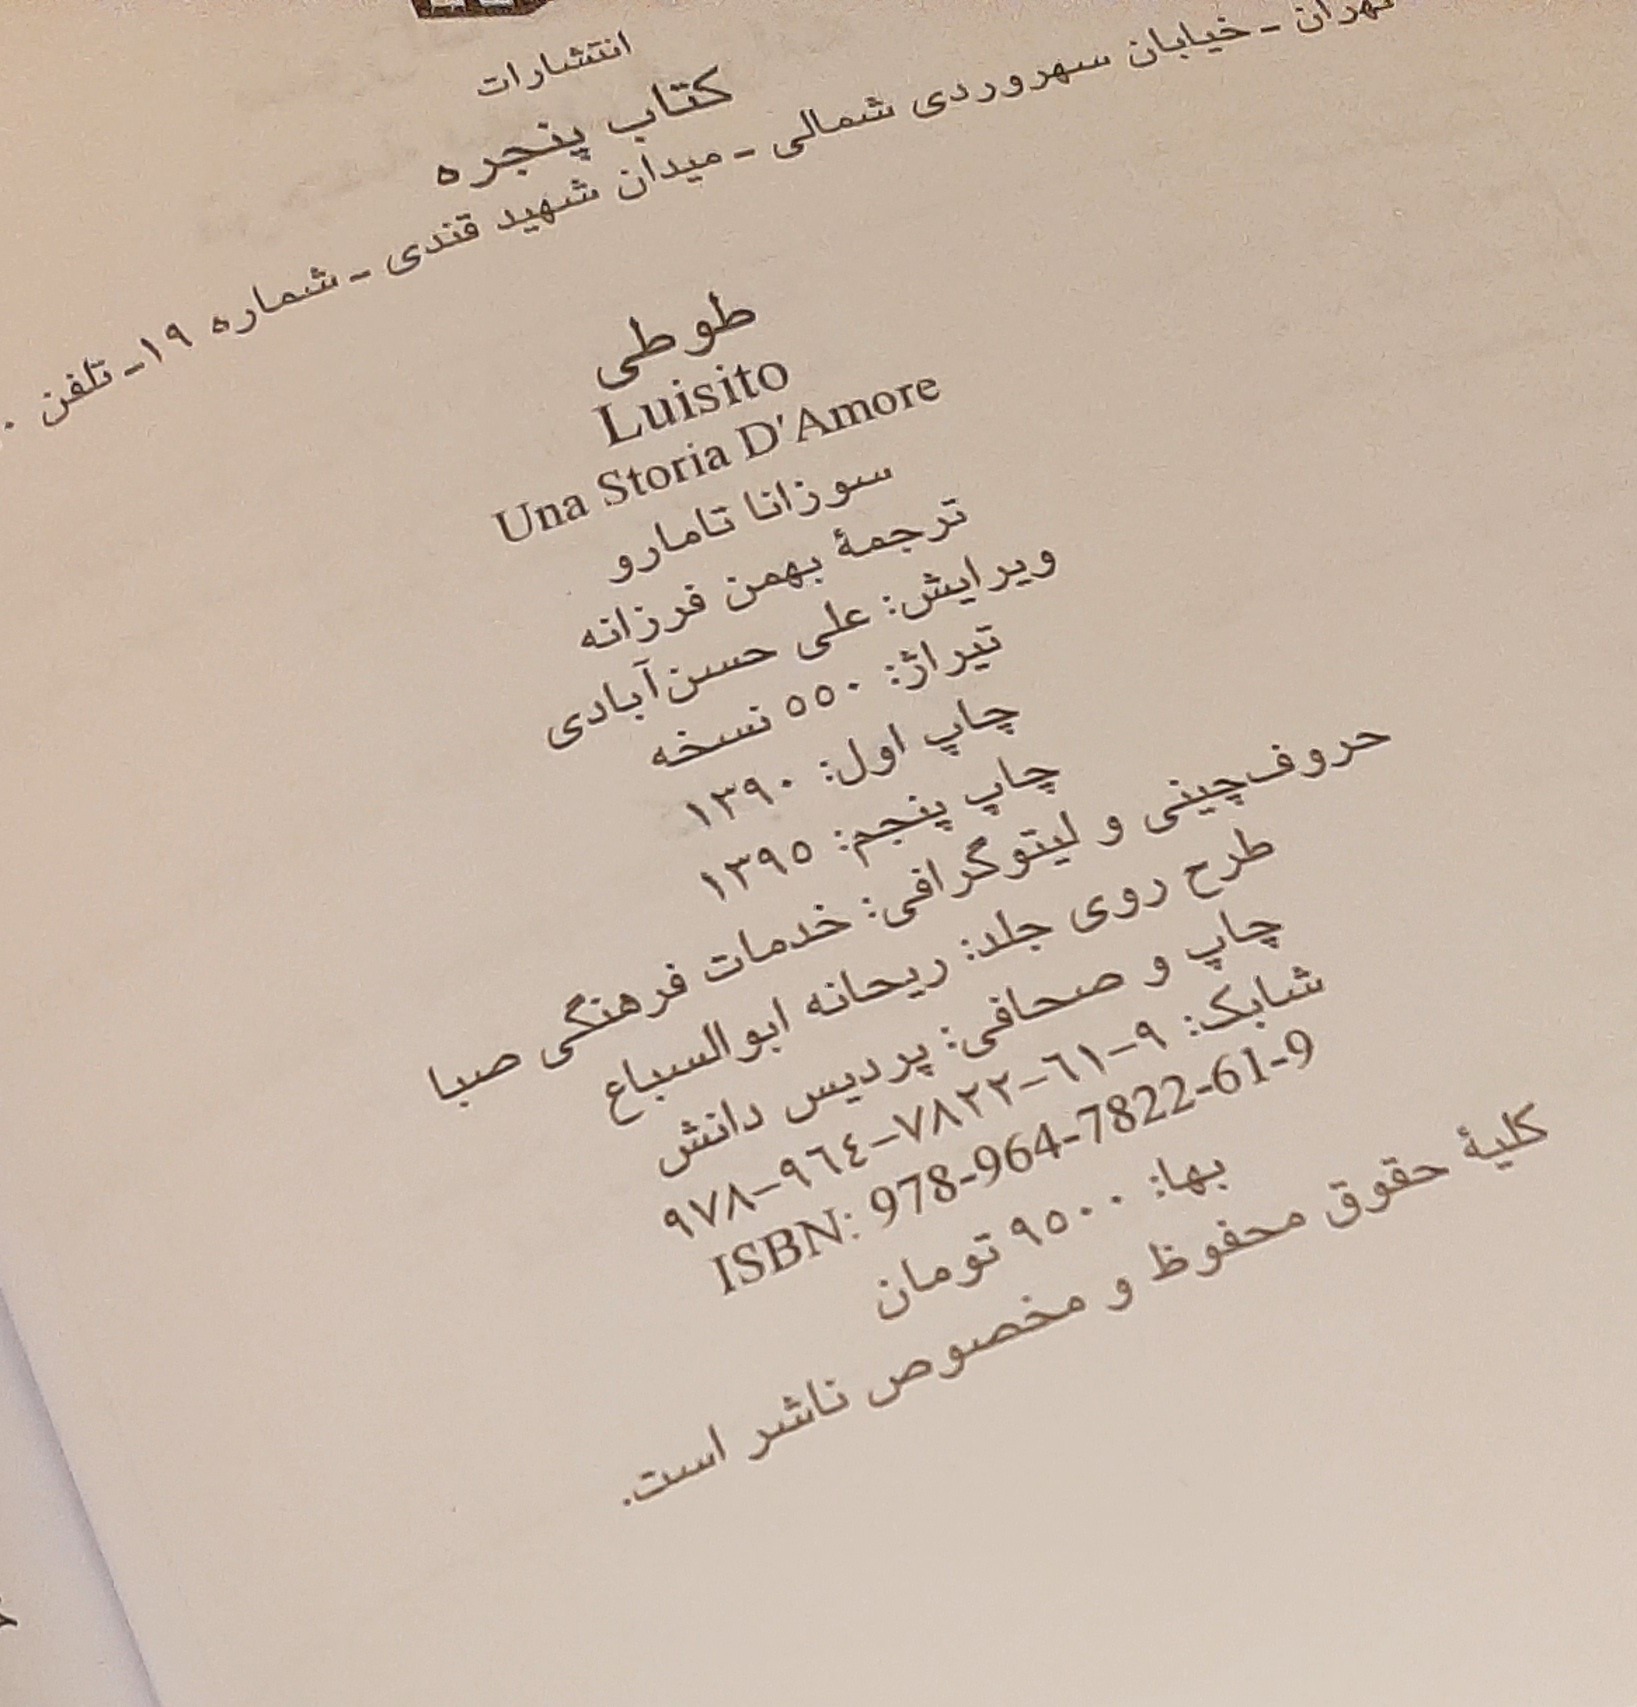 انتشارات
کتاب پنجره
تهران - خیابان سهروردی شمالی - میدان شهید قندی - شماره ۱۹ - تلفن
طوطی
Luisito
Una Storia D'Amore
سوزانا تامارو
ترجمهٔ بهمن فرزانه
ویرایش: علی حسن‌آبادی
تیراژ: ۵۵۰ نسخه
چاپ اول: ۱۳۹۰
چاپ پنجم: ۱۳۹۵
حروف‌چینی و لیتوگرافی: خدمات فرهنگی صبا
طرح روی جلد: ریحانه ابوالسباع
چاپ و صحافی: پردیس دانش
شابک: ۹-۶۱-۷۸۲۲-۹۶۴-۹۷۸
ISBN: 978-964-7822-61-9
بها: ۹۵۰۰ تومان
کلیهٔ حقوق محفوظ و مخصوص ناشر است.